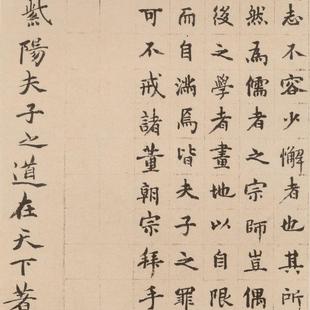 志不容少懈者也其所
然為儒者之宗師豈偶
後之學者畫地以自限
而自滿焉皆夫子之罪
可不戒諸董朝宗拜手
紫陽夫子之道在天下著